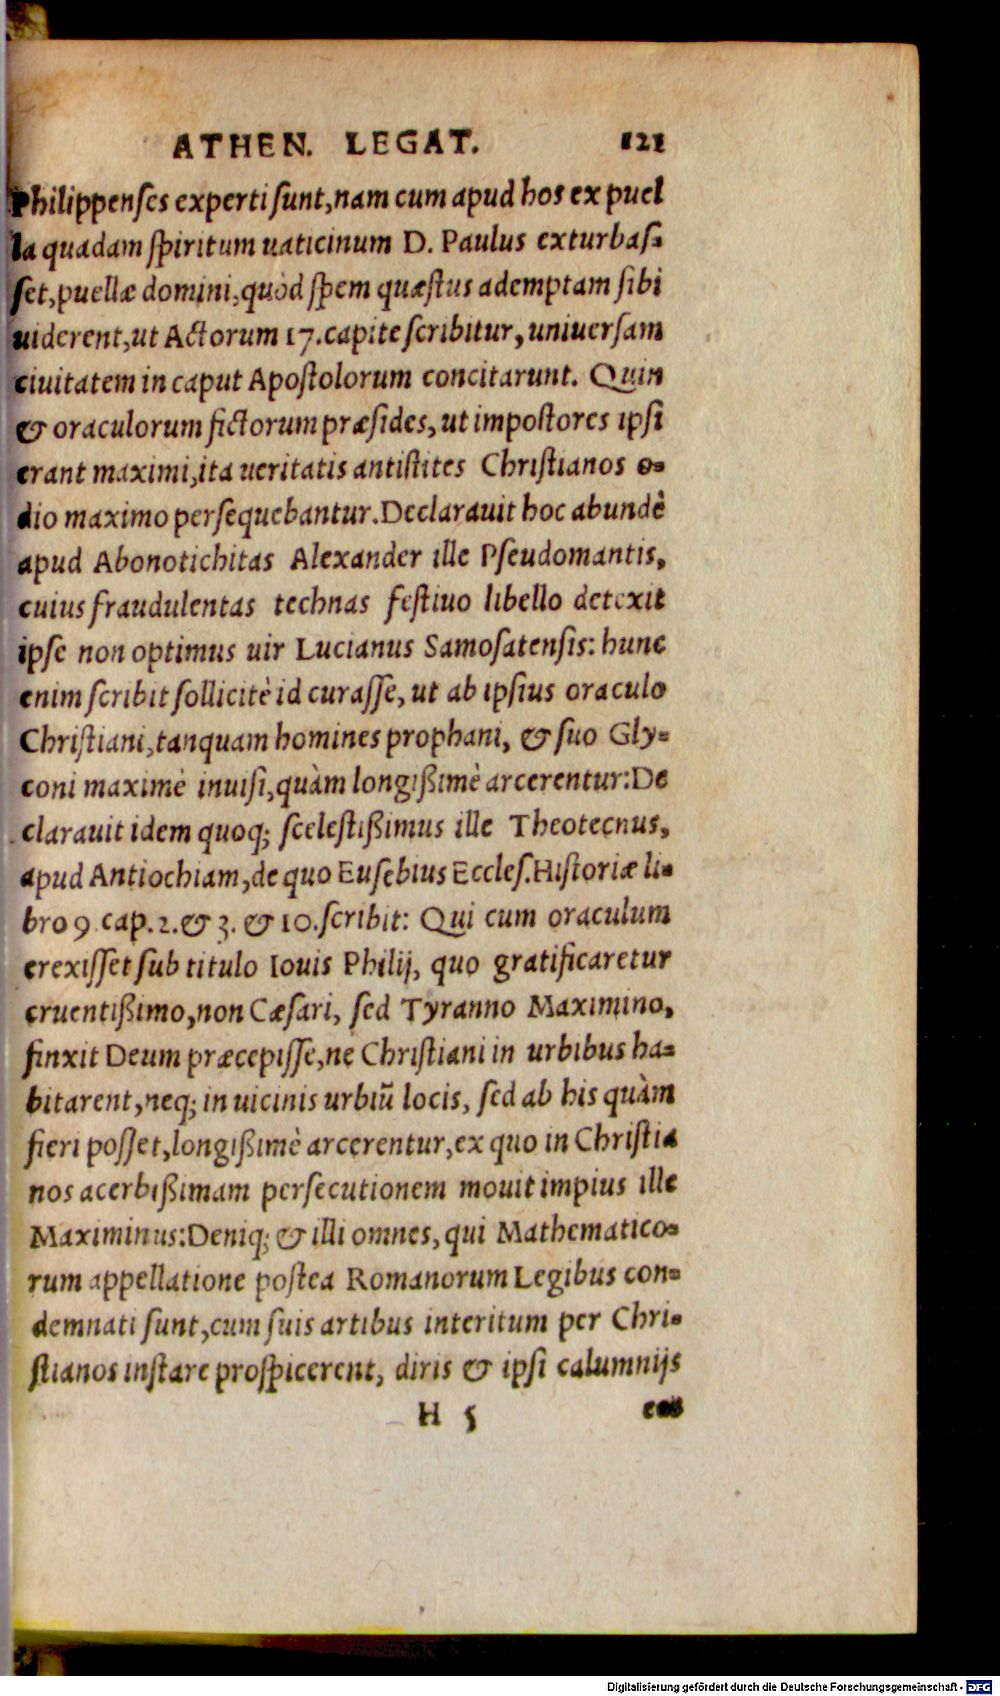 ATHEN. LEGAT. 121
Philippenſes experti ſunt, nam cum apud hos ex puel
la quadam ſpiritum uaticinum D. Paulus exturbaſ-
ſet, puellæ domini, quòd ſpem quæſtus ademptam ſibi
uiderent, ut Actorum 17. capite ſcribitur, uniuerſam
ciuitatem in caput Apoſtolorum concitarunt. Quin
& oraculorum fictorum præſides, ut impoſtores ipſi
erant maximi, ita ueritatis antiſtites Chriſtianos o-
dio maximo perſequebantur. Declarauit hoc abundè
apud Abonotichitas Alexander ille Pſeudomantis,
cuius fraudulentas technas feſtiuo libello detexit
ipſe non optimus uir Lucianus Samoſatenſis: hunc
enim ſcribit ſollicitè id curaſſe, ut ab ipſius oraculo
Chriſtiani, tanquam homines prophani, & ſuo Gly-
coni maximè inuiſi, quàm longißimè arcerentur: De
clarauit idem quoq; ſceleſtißimus ille Theotecnus,
apud Antiochiam, de quo Euſebius Eccleſ. Hiſtoriæ li-
bro 9 cap. 2. & 3. & 10. ſcribit: Qui cum oraculum
erexiſſet ſub titulo Iouis Philij, quo gratificaretur
cruentißimo, non Cæſari, ſed Tyranno Maximino,
finxit Deum præcepiſſe, ne Chriſtiani in urbibus ha-
bitarent, neq; in uicinis urbiũ locis, ſed ab his quàm
fieri poſſet, longißimè arcerentur, ex quo in Chriſtia
nos acerbißimam perſecutionem mouit impius ille
Maximinus: Deniq; & illi omnes, qui Mathematico-
rum appellatione poſtea Romanorum Legibus con-
demnati ſunt, cum ſuis artibus interitum per Chri-
ſtianos inſtare proſpicerent, diris & ipſi calumnijs
H 5 eos
Digitalisierung gefördert durch die Deutsche Forschungsgemeinschaft - DFG